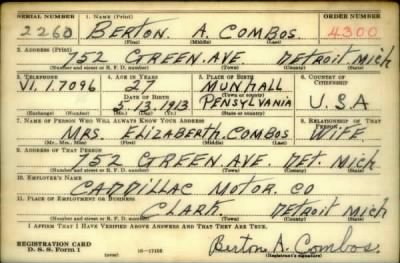 SERIAL NUMBER 1. NAME (Print) ORDER NUMBER
2260 BERTON. A. COMBOS. 4300
(First) (Middle) (Last)
2. ADDRESS (Print)
752 GREEN. AVE DETROIT MICH
(Number and street or R. F. D. number) (Town) (County) (State)
3. TELEPHONE 4. AGE IN YEARS 5. PLACE OF BIRTH 6. COUNTRY OF CITIZENSHIP
VI. 1.7096 27 MUNHALL
DATE OF BIRTH (Town or county)
5.13.1913 PENSYLVANIA U.S.A
(Exchange) (Number) (Mo.) (Day) (Yr.) (State or country)
7. NAME OF PERSON WHO WILL ALWAYS KNOW YOUR ADDRESS 8. RELATIONSHIP OF THAT PERSON
MRS. ELIZABERTH. COMBOS WIFE.
(Mr., Mrs., Miss) (First) (Middle) (Last)
9. ADDRESS OF THAT PERSON
752 GREEN AVE. DET. MICH.
(Number and street or R. F. D. number) (Town) (County) (State)
10. EMPLOYER'S NAME
CADILLAC MOTOR. CO
11. PLACE OF EMPLOYMENT OR BUSINESS
CLARK. DETROIT MICH
(Number and street or R. F. D. number) (Town) (County) (State)
I AFFIRM THAT I HAVE VERIFIED ABOVE ANSWERS AND THAT THEY ARE TRUE.
REGISTRATION CARD
D. S. S. Form 1 (over) 16-17105 Berton A. Combos.
(Registrant's signature)